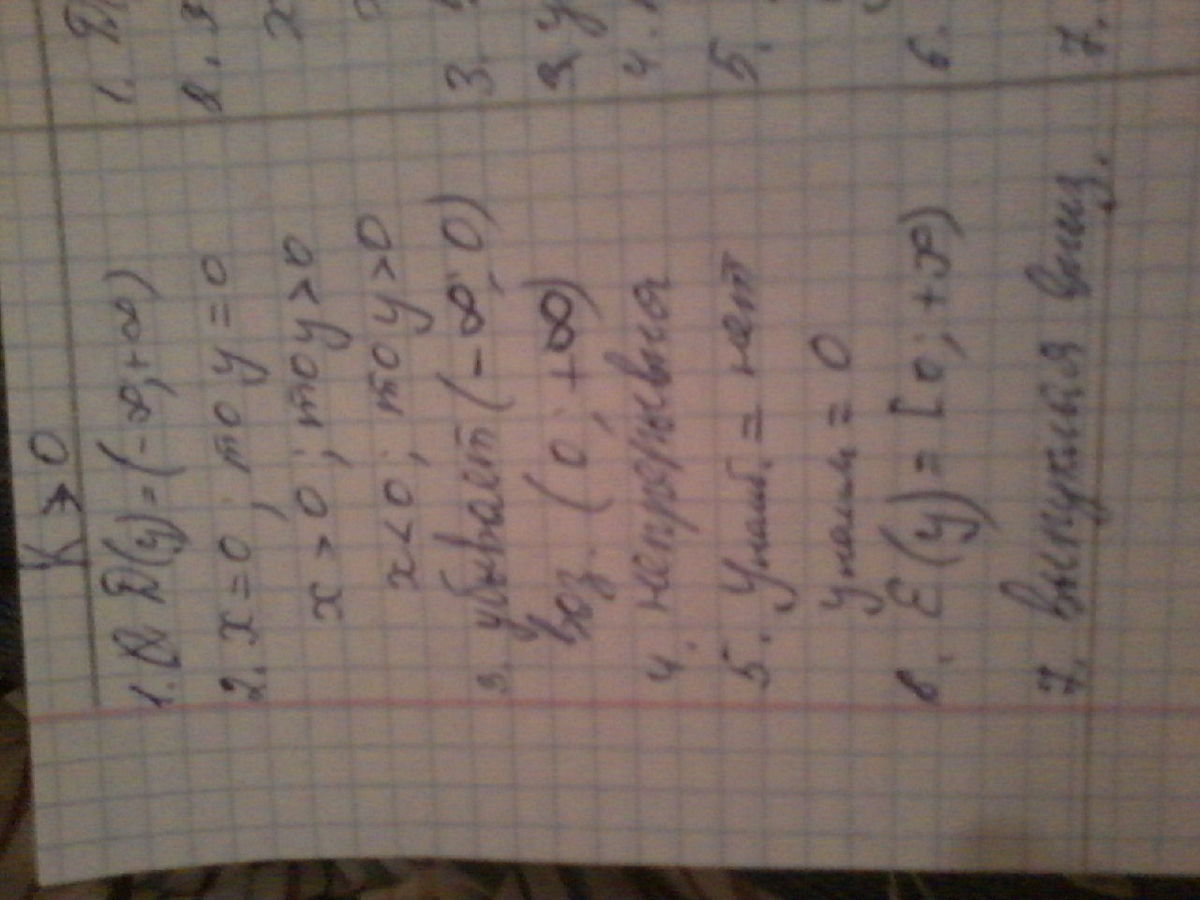 K > 0
1. D(y) = (-∞; +∞)
2. x = 0; то y = 0
x > 0; то y > 0
x < 0; то y > 0
3. убывает (-∞; 0)
воз. (0; +∞)
4. непрерывная
5. yнаиб. = нет
yнаим = 0
6. E(y) = [0; +∞)
7. выпуклая вниз.
1. D
2.
x
3.
3. y
4.
5.
6.
7.